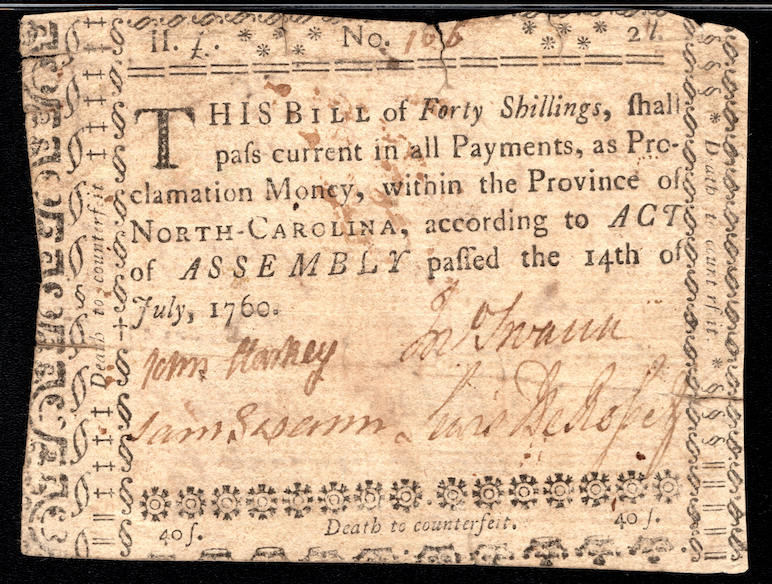 II. No. 166 2l.
THIS BILL of Forty Shillings, ſhall
paſs current in all Payments, as Pro-
clamation Money, within the Province of
NORTH-CAROLINA, according to ACT
of ASSEMBLY paſſed the 14th of
July, 1760.
John Starkey Jno Swann
Sam Swann Lewis DeRoſſet
40ſ. Death to counterfeit. 40ſ.
Death to counterfeit
Death to counterfeit.